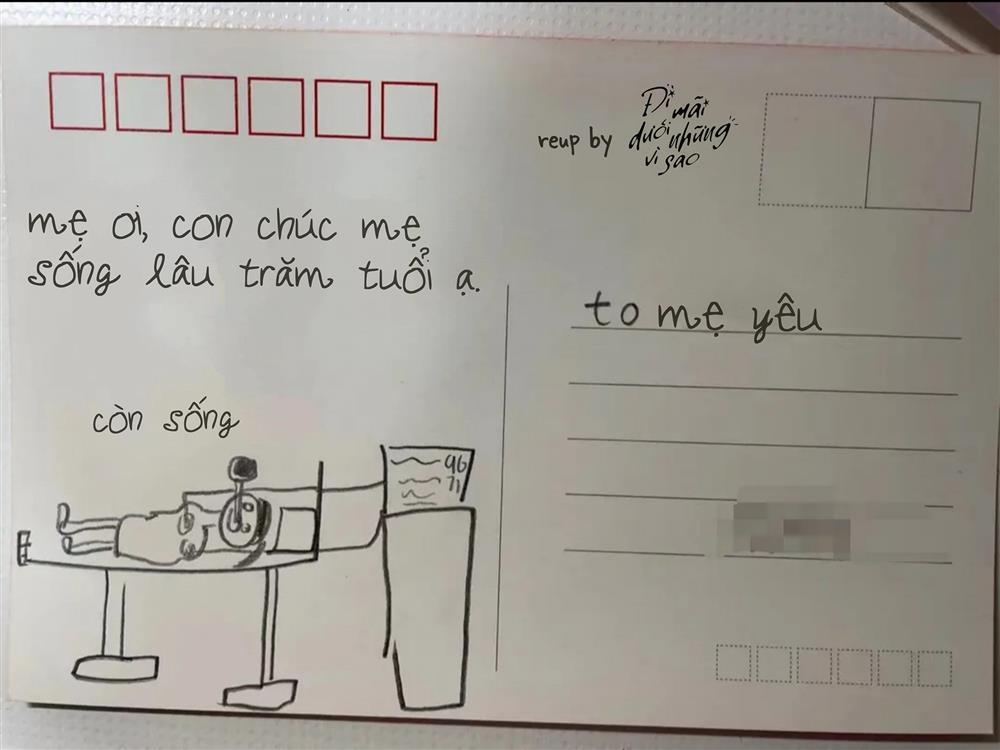 reup by
Đi mãi
dưới những
vì sao
mẹ ơi, con chúc mẹ
sống lâu trăm tuổi ạ.
to mẹ yêu
còn sống
96
71